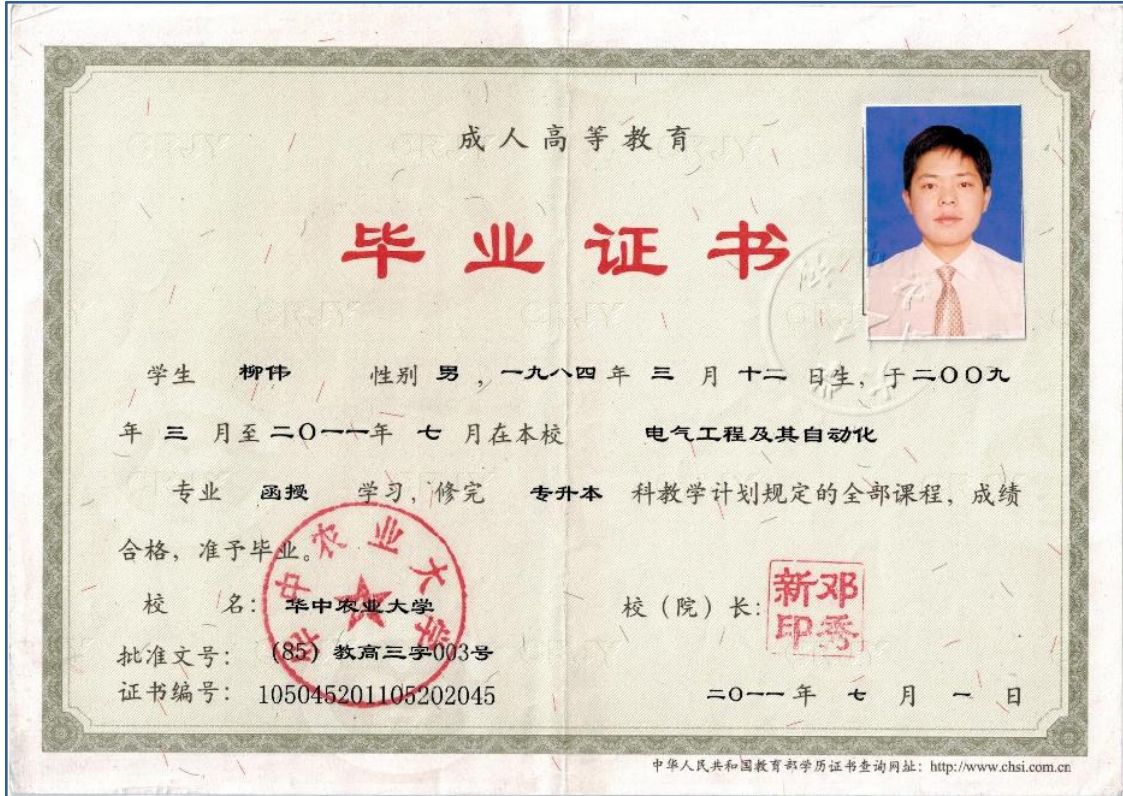 成人高等教育
毕业证书
学生 柳伟 性别 男 ，一九八四 年 三 月 十二 日生，于 二〇〇九
年 三 月至 二〇一一 年 七 月在本校 电气工程及其自动化
专业 函授 学习，修完 专升本 科教学计划规定的全部课程，成绩
合格，准予毕业。
华中农业大学
校 名：华中农业大学
校（院）长：
邓秀新印
批准文号：(85) 教高三字003号
证书编号：105045201105202045
二〇一一 年 七 月 一 日
中华人民共和国教育部学历证书查询网址：http://www.chsi.com.cn